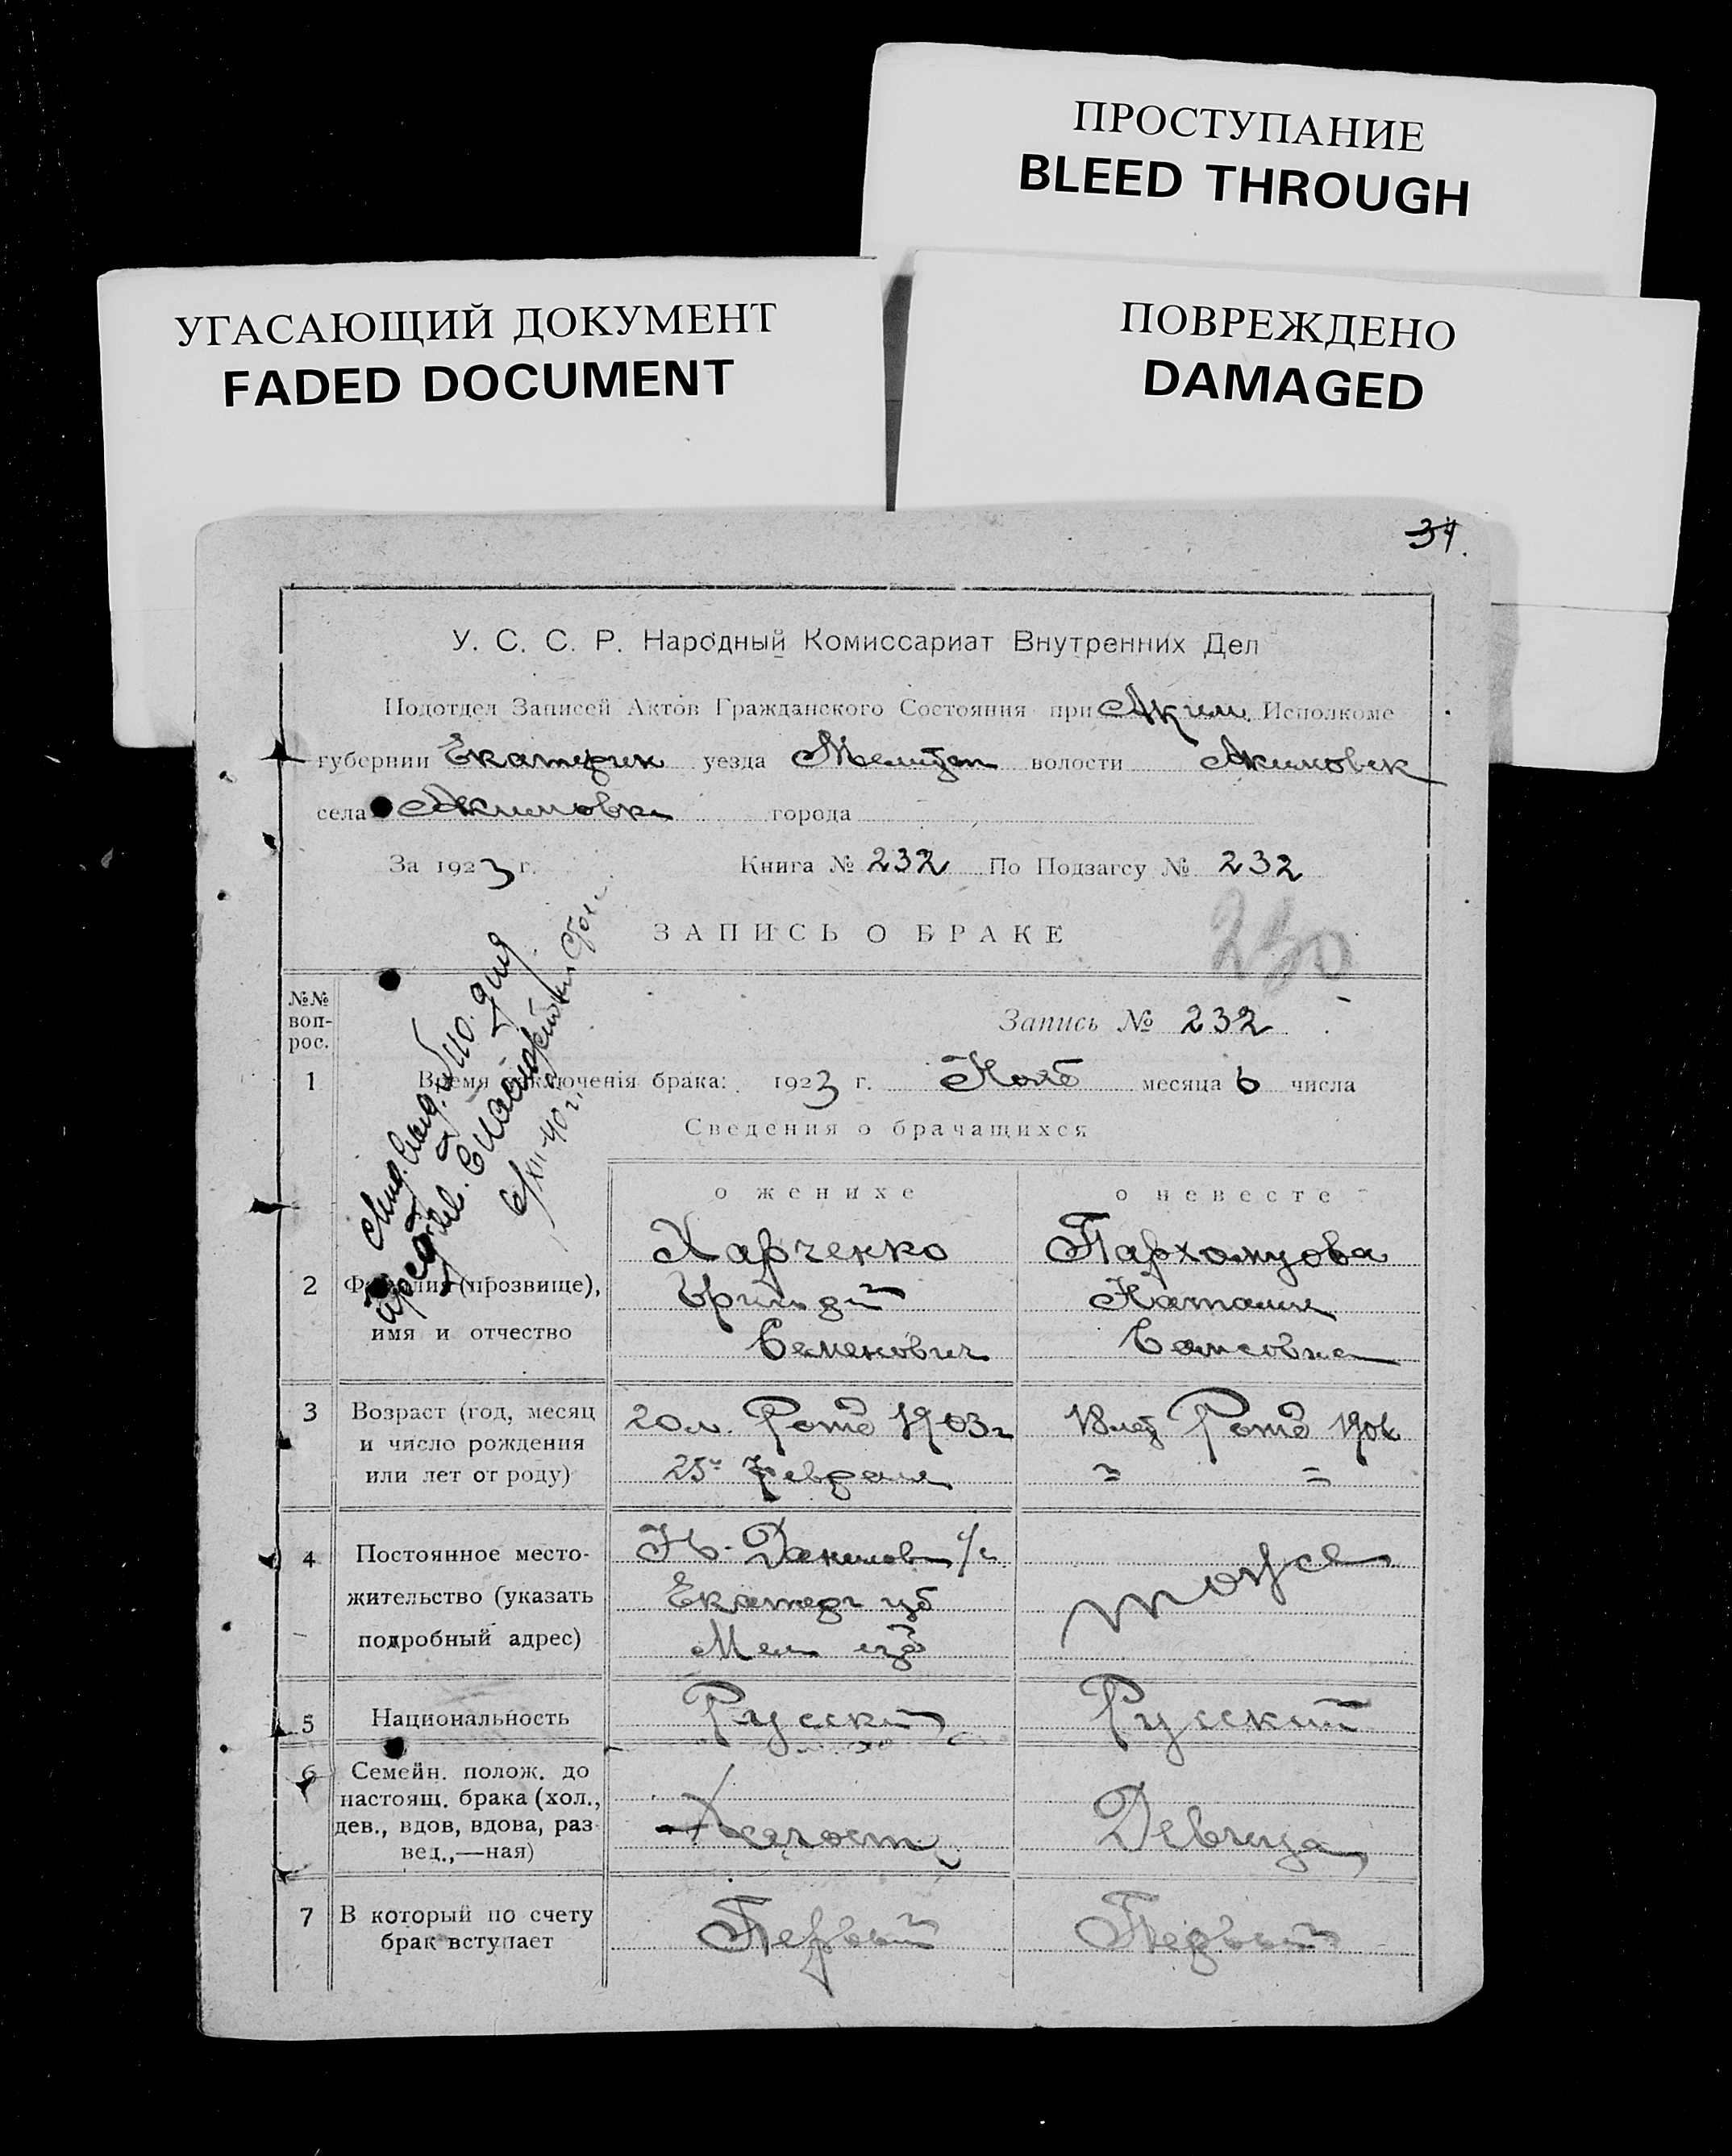 ПРОСТУПАНИЕ
BLEED THROUGH
УГАСАЮЩИЙ ДОКУМЕНТ
FADED DOCUMENT
ПОВРЕЖДЕНО
DAMAGED
У. С. С. Р. Народный Комиссариат Внутренних Дел
Подотдел Записей Актов Гражданского Состояния при Аким. Исполкоме
губернии Екатерин уезда Мелитоп волости Акимовск
села Акимовки города
За 1923 г. Книга № 232 По Подзагсу № 232
ЗАПИСЬ О БРАКЕ
230
№№ воп- рос.
Запись № 232
1 Время заключенія брака: 1923 г. Нояб месяца 6 числа
Сведения о брачащихся
о женихе о невесте
2 Фамилия (прозвище),
имя и отчество
Харченко
Семенович
Пархомцова
Наталия
3 Возраст (год, месяц
и число рождения
или лет от роду)
20 л. 1903 г
25 Февраля
18 лет
4 Постоянное место-
жительство (указать
подробный адрес)
Н. Даниловк
Екатер губ
Мел уез
тоже
5 Национальность Русский Русский
6 Семейн. полож. до
настоящ. брака (хол.,
дев., вдов, вдова, раз-
вед.,—ная)
Холост
Девица
7 В который по счету
брак вступает
Первый Первый